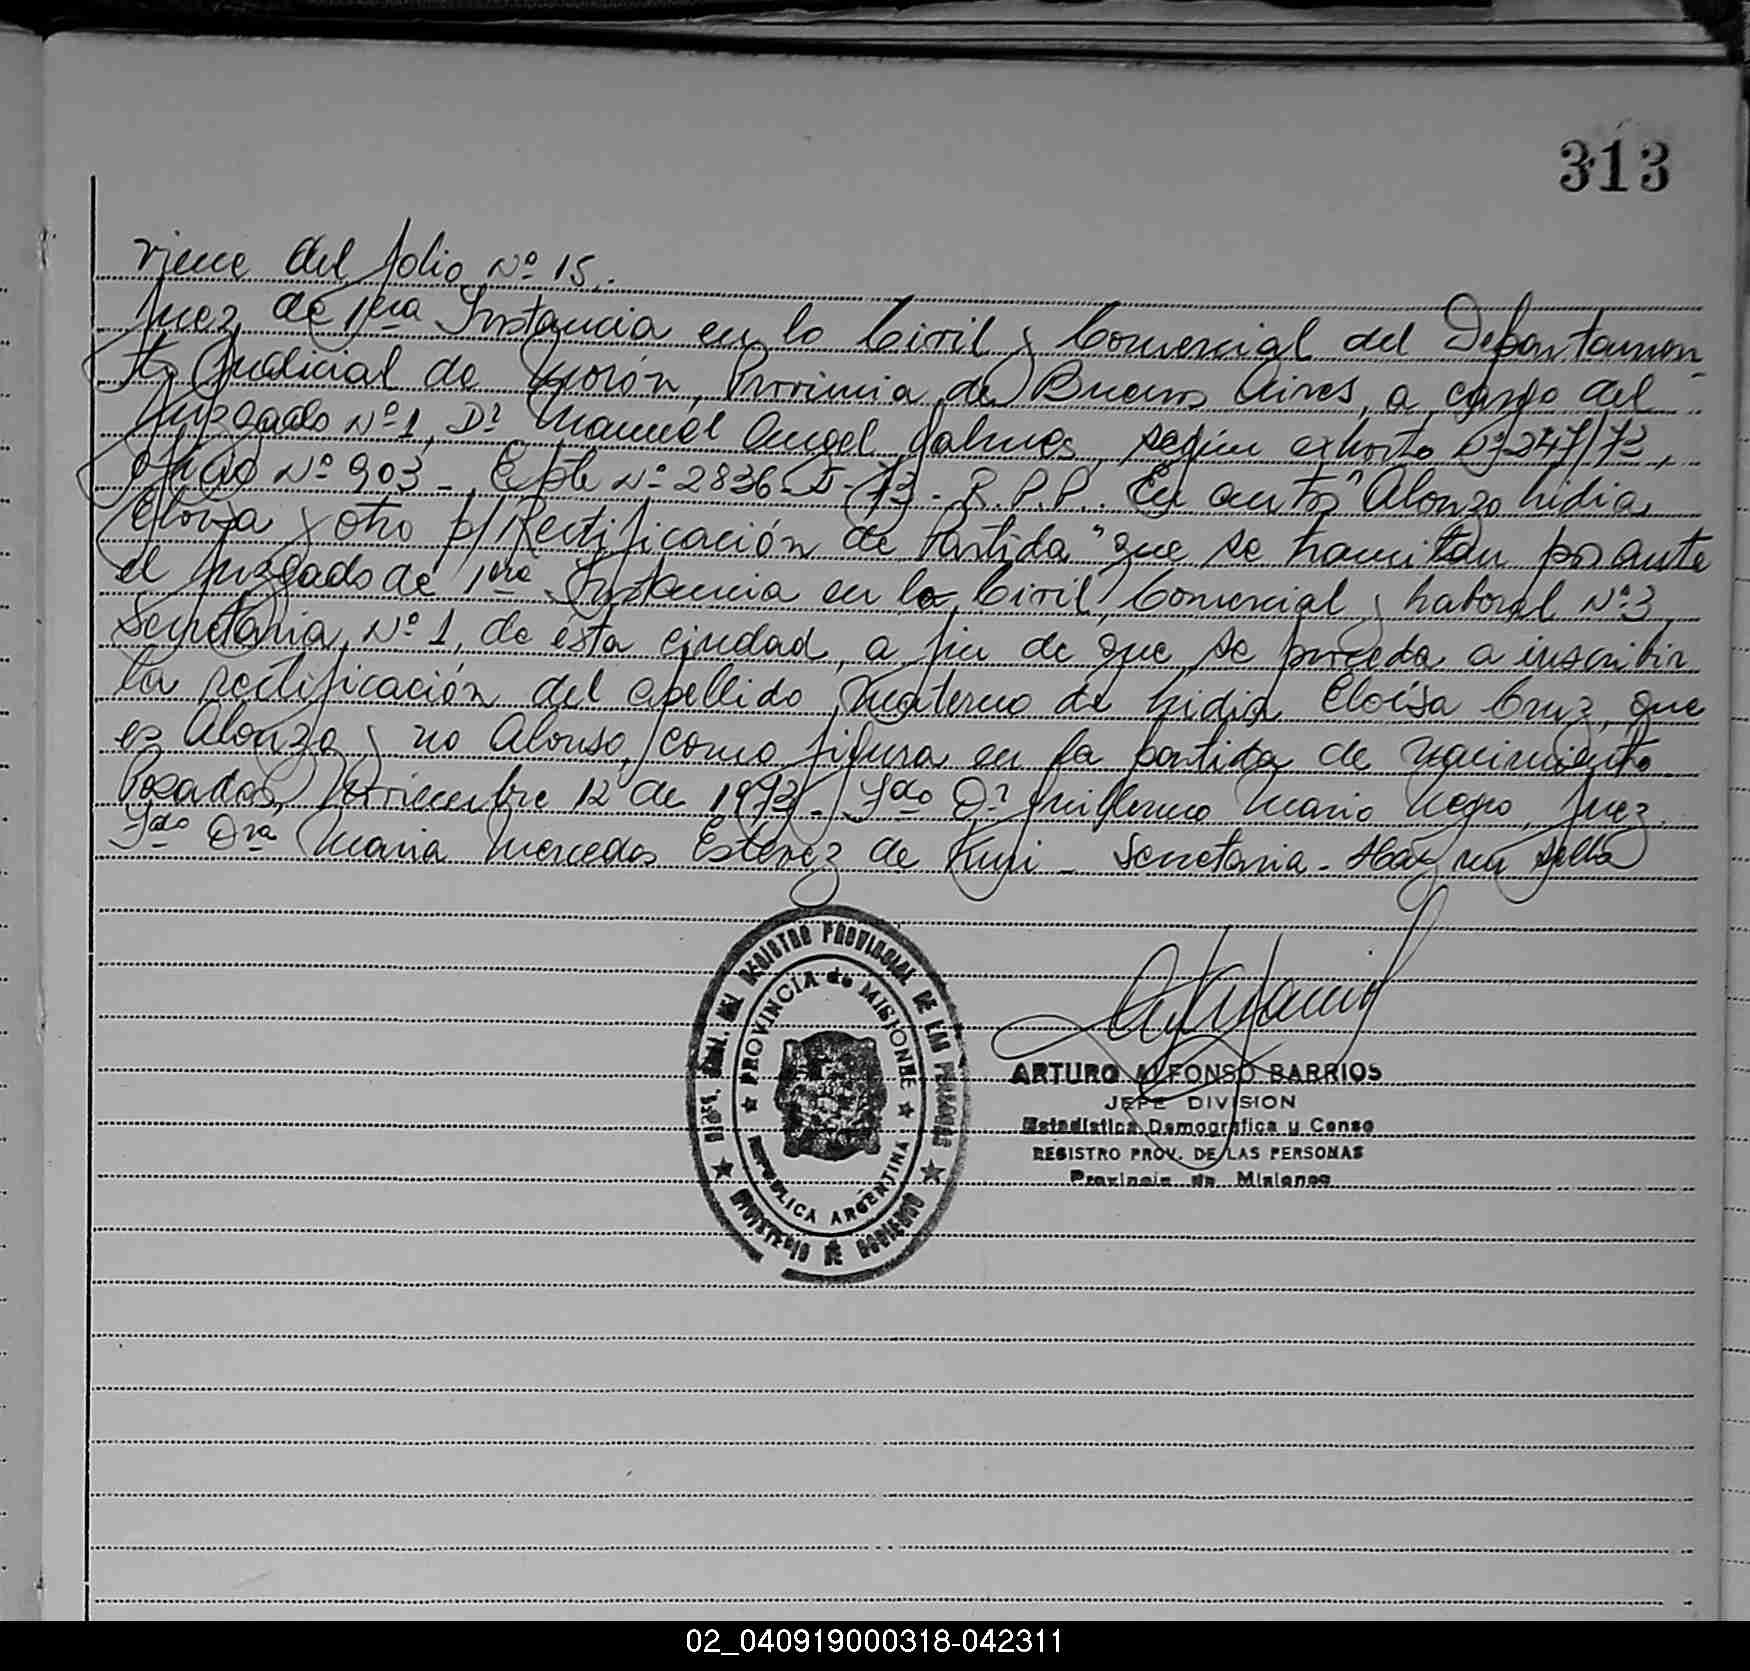 313
viene del folio Nº 15.
Juez de 1era Instancia en lo Civil y Comercial del Departamen-
to Judicial de Morón, Provincia de Buenos Aires, a cargo del
Juzgado Nº 1, Dr Manuel Angel, según exhorto Nº 247/73,
oficio Nº 903 - Expte Nº 2836-I-73- R.P.P. En autos "Alonzo Lidia
Eloisa y otro p/ Rectificación de Partida" que se tramitan por ante
el Juzgado de 1era Instancia en lo Civil, Comercial y Laboral Nº 3,
Secretaria Nº 1, de ésta ciudad, a fin de que se proceda a inscribir
la rectificación del apellido materno de Lidia Eloísa Cruz, que
es Alonzo y no Alonso, como figura en la partida de nacimiento.
Posadas, Noviembre 12 de 1973 - Fdo Dr Guillermo Mario Negro, Juez.
Fdo Dra Maria Mercedes Estevez de - Secretaria - Hay un sello
DEL REGISTRO PROVINCIAL DE LAS PERSONAS
PROVINCIA de MISIONES
REPUBLICA ARGENTINA
MINISTERIO DE GOBIERNO
ARTURO ALFONSO BARRIOS
JEFE DIVISION
Estadistica Demografica y Censo
REGISTRO PROV. DE LAS PERSONAS
Provincia de Misiones
02_040919000318-042311